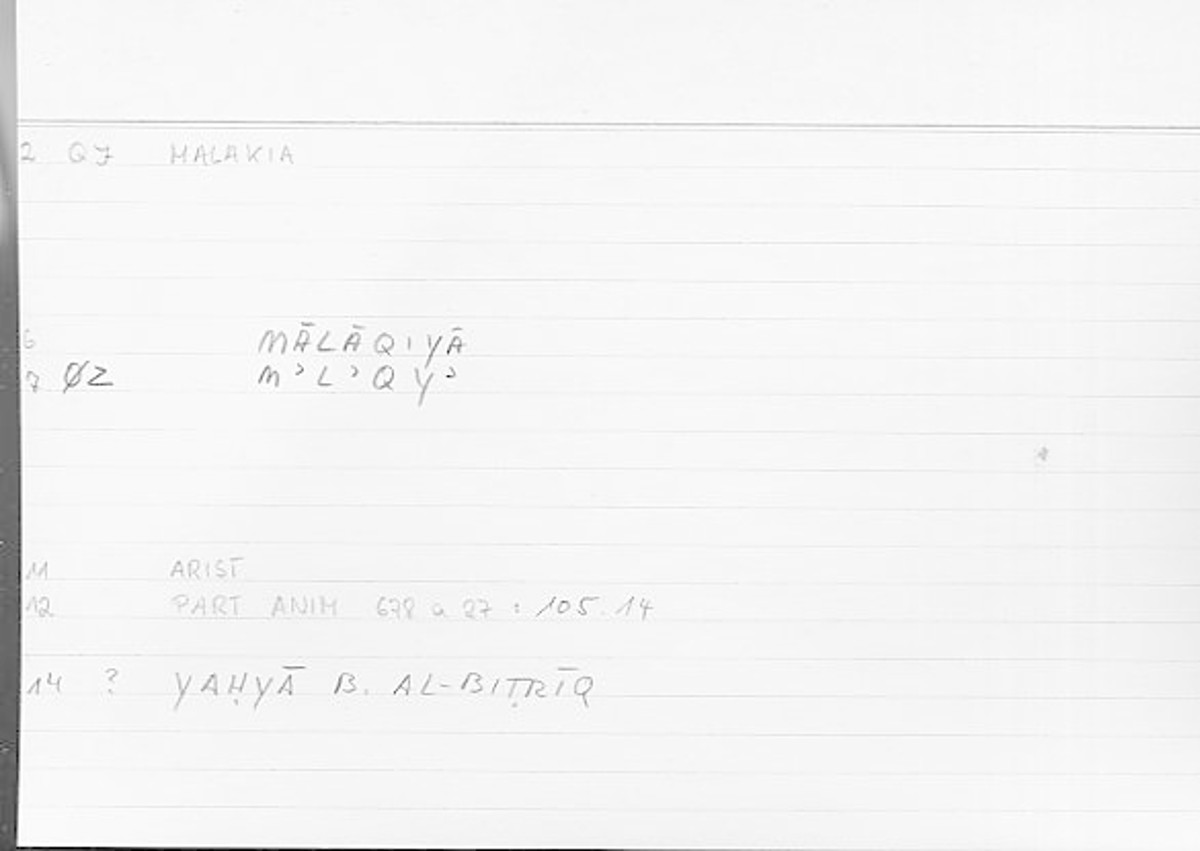 2 QJ MALAKIA
6 MĀLĀQIYĀ
7 ØZ MʾLʾQYʾ
11 ARIST
12 PART ANIM 678 a 27 : 105.14
14 ? YAḤYĀ B. AL-BIṬRĪQ